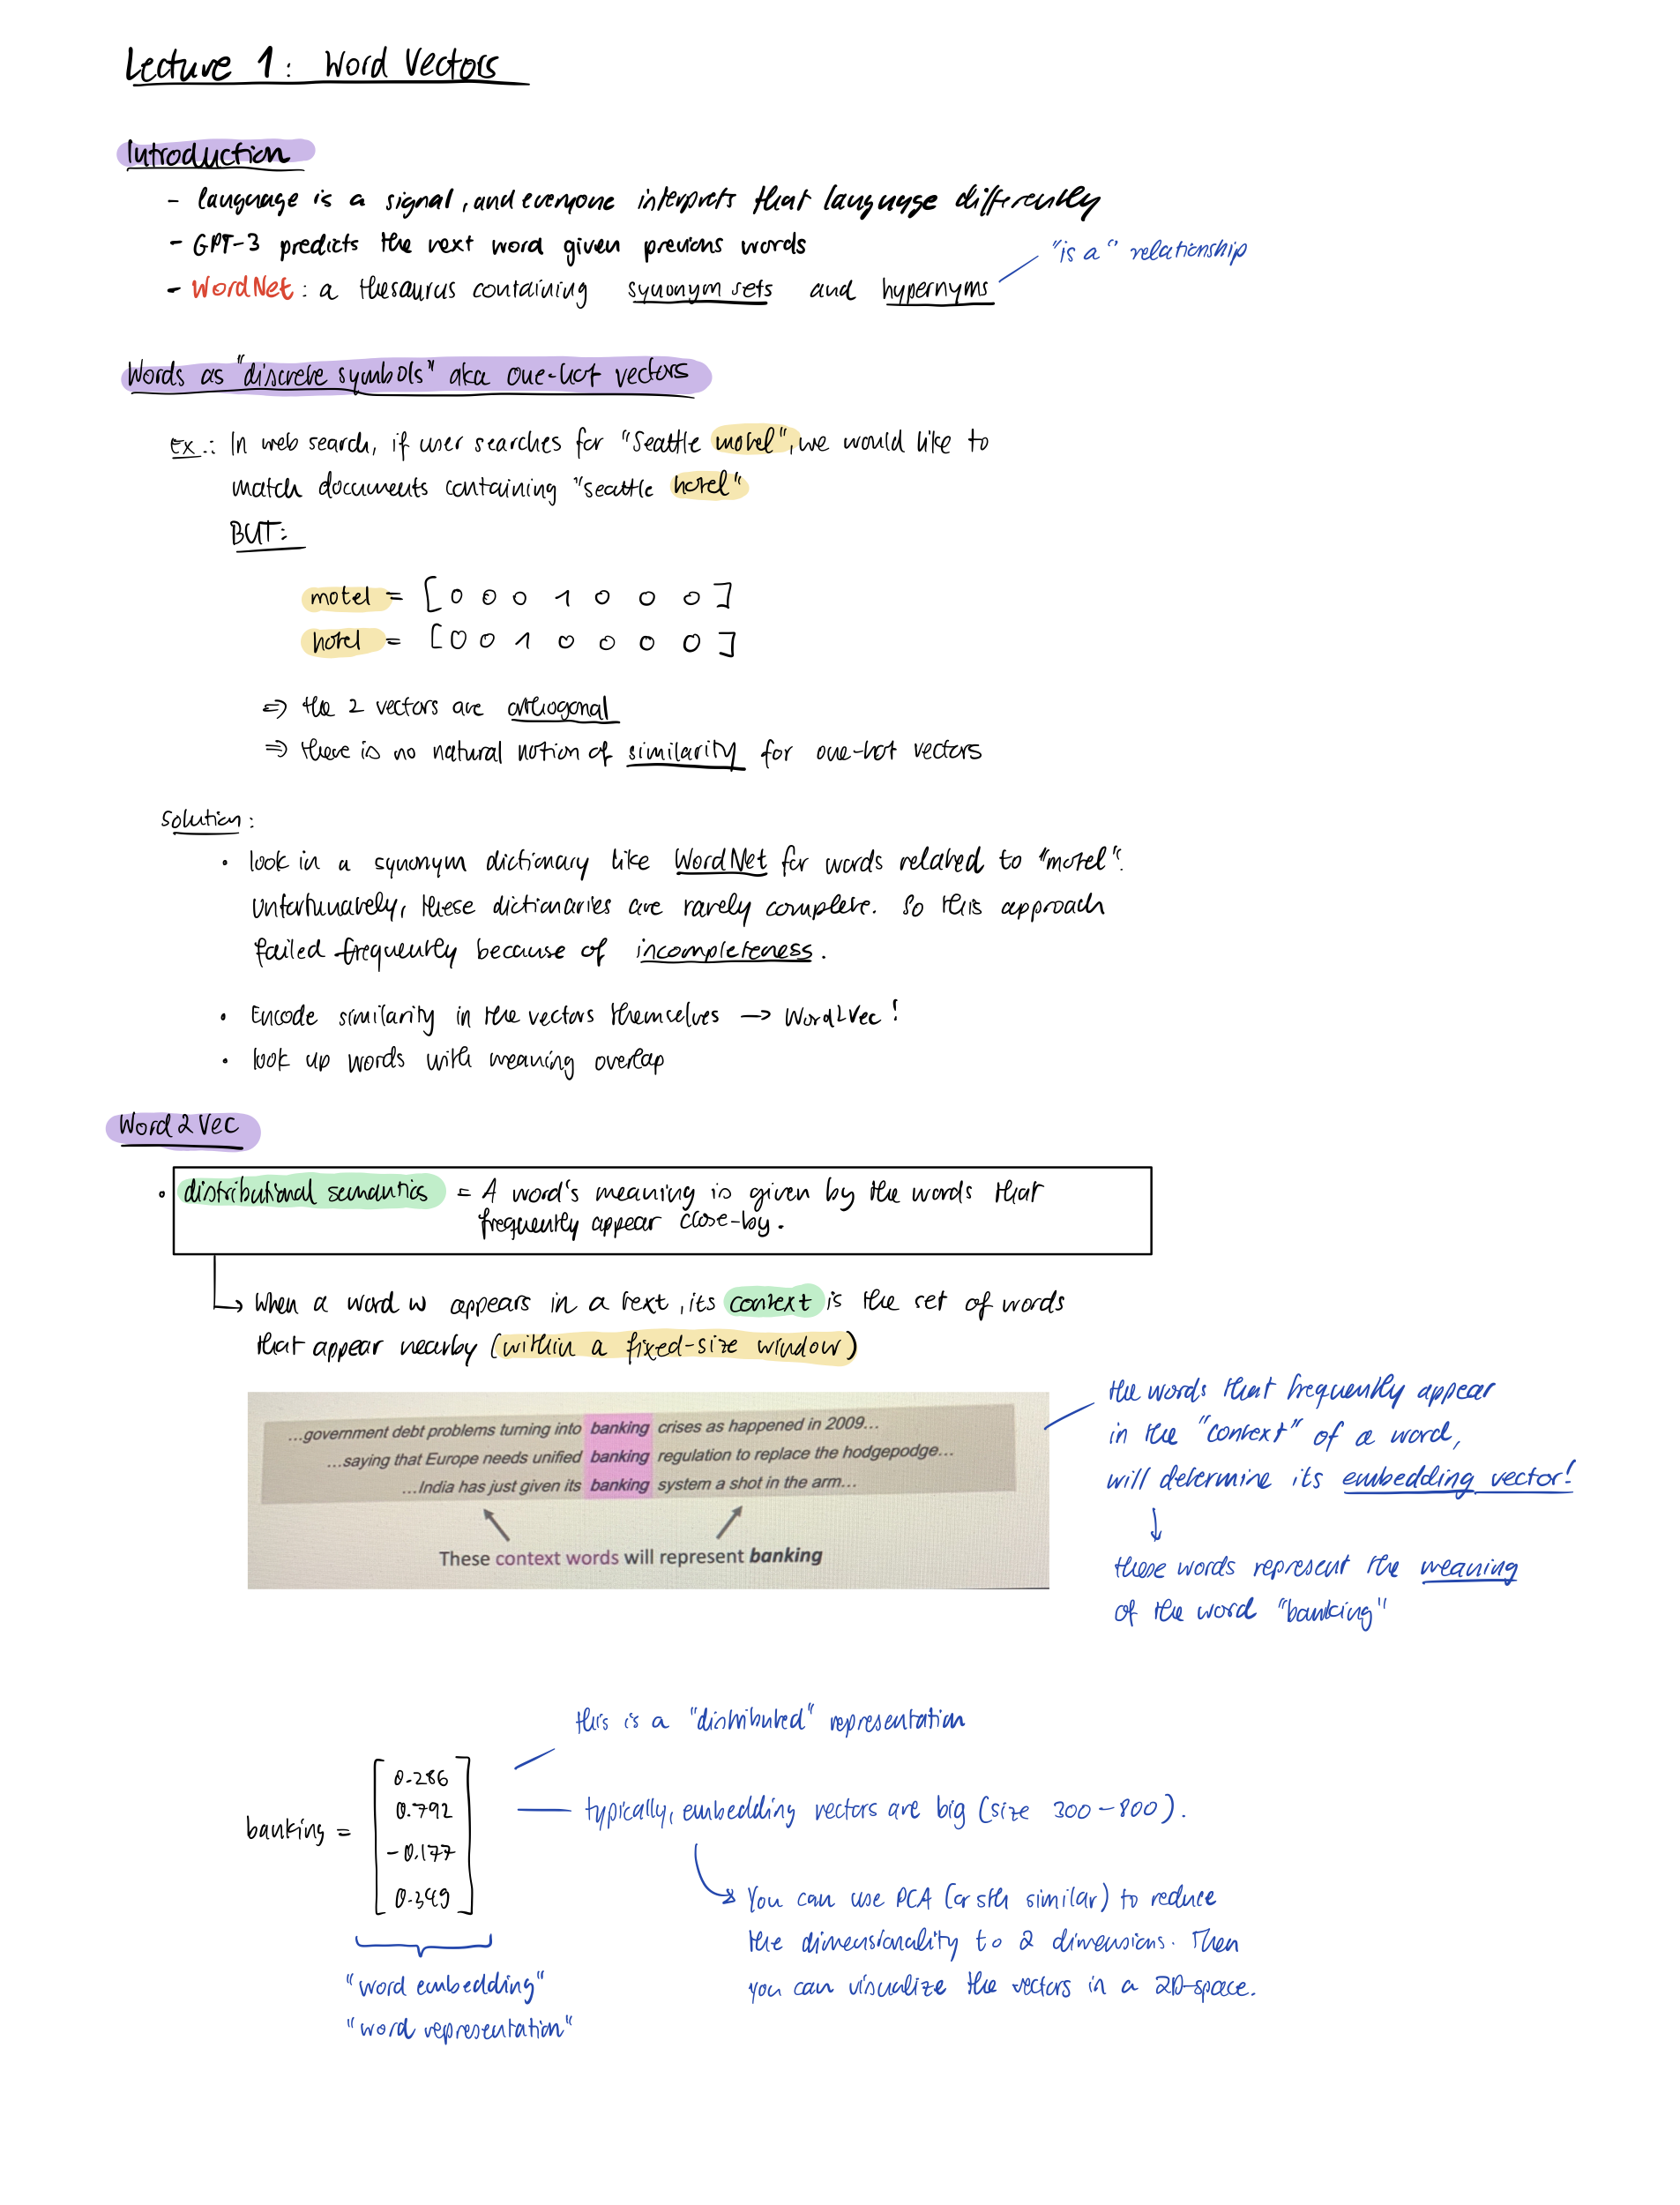 Lecture 1: Word Vectors
Introduction
- language is a signal, and everyone interprets that language differently
- GPT-3 predicts the next word given previous words
"is a" relationship
- WordNet: a thesaurus containing synonym sets and hypernyms
Words as "discrete symbols" aka one-hot vectors
Ex.: In web search, if user searches for "Seattle motel", we would like to
match documents containing "Seattle hotel"
BUT:
motel = [ 0 0 0 1 0 0 0 ]
hotel = [ 0 0 1 0 0 0 0 ]
⇒ the 2 vectors are orthogonal
⇒ there is no natural notion of similarity for one-hot vectors
Solution:
• look in a synonym dictionary like WordNet for words related to "motel".
Unfortunately, these dictionaries are rarely complete. So this approach
failed frequently because of incompleteness.
• Encode similarity in the vectors themselves → Word2Vec!
• look up words with meaning overlap
Word2Vec
• distributional semantics = A word's meaning is given by the words that
frequently appear close-by.
↳ When a word w appears in a text, its context is the set of words
that appear nearby (within a fixed-size window)
…government debt problems turning into banking crises as happened in 2009…
…saying that Europe needs unified banking regulation to replace the hodgepodge…
…India has just given its banking system a shot in the arm…
These context words will represent banking
the words that frequently appear
in the "context" of a word,
will determine its embedding vector!
↓
these words represent the meaning
of the word "banking"
this is a "distributed" representation
banking = [
0.286
0.792
-0.177
0.349
]
typically, embedding vectors are big (size 300-800).
You can use PCA (or sth similar) to reduce
the dimensionality to 2 dimensions. Then
you can visualize the vectors in a 2D-space.
"word embedding"
"word representation"